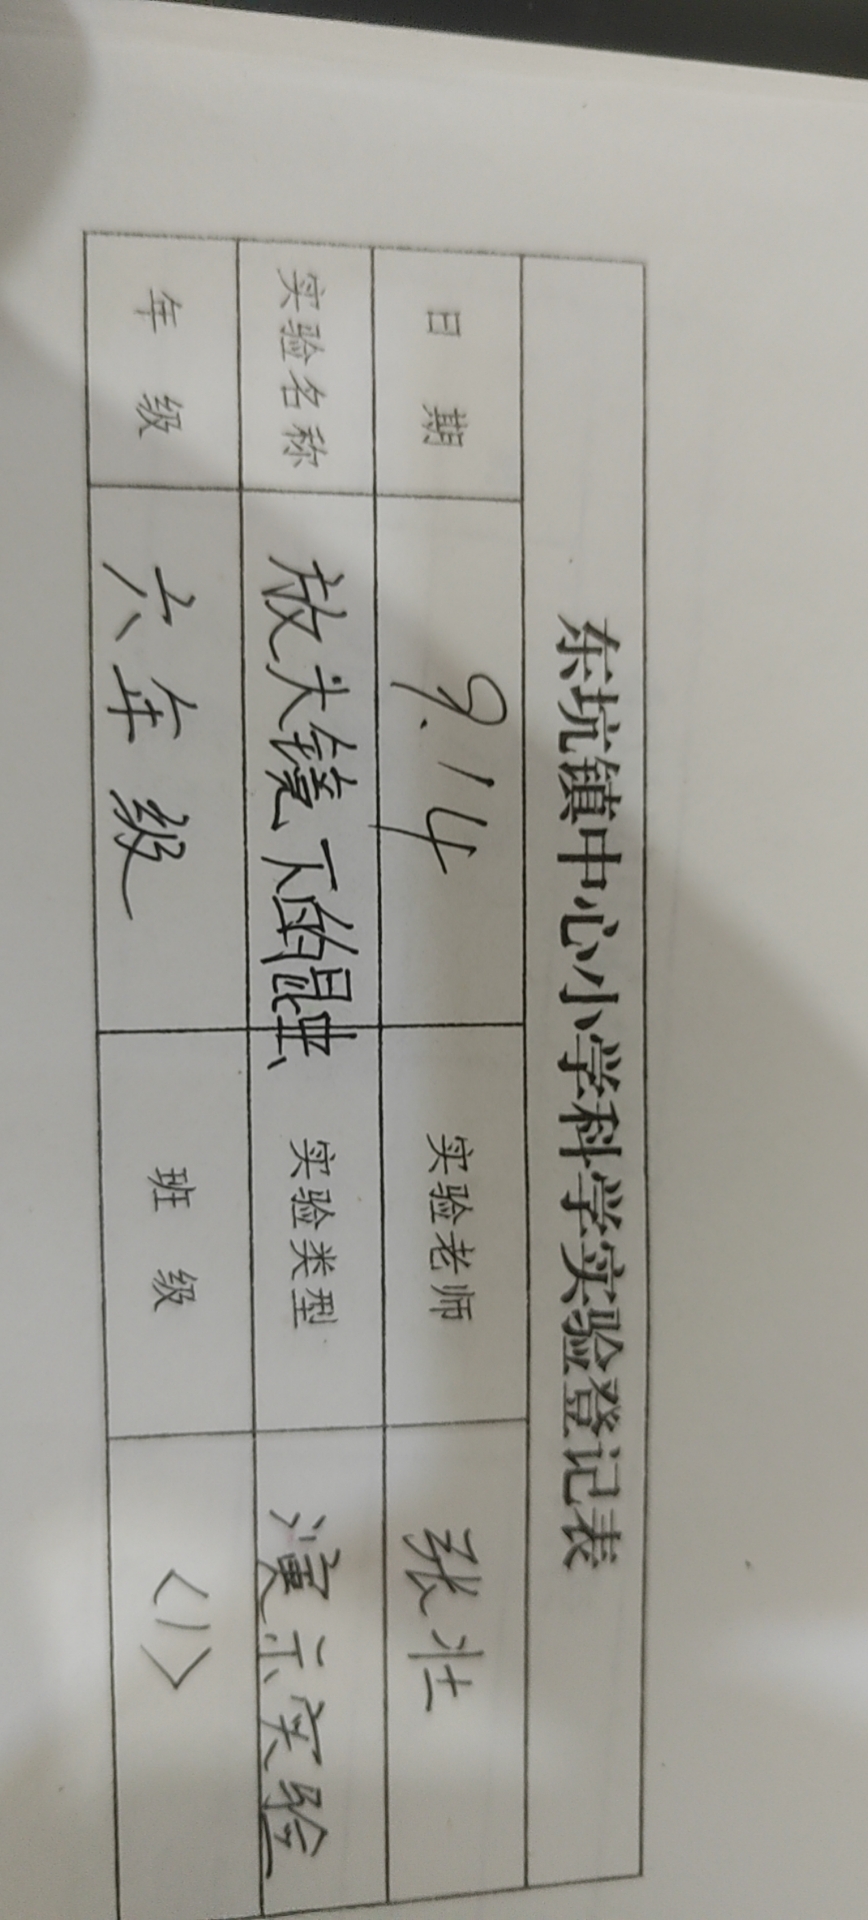 东坑镇中心小学科学实验登记表
日 期 9.14 实验老师 张壮
实验名称 放大镜下的昆虫 实验类型 演示实验
年 级 六年级 班 级 〈1〉